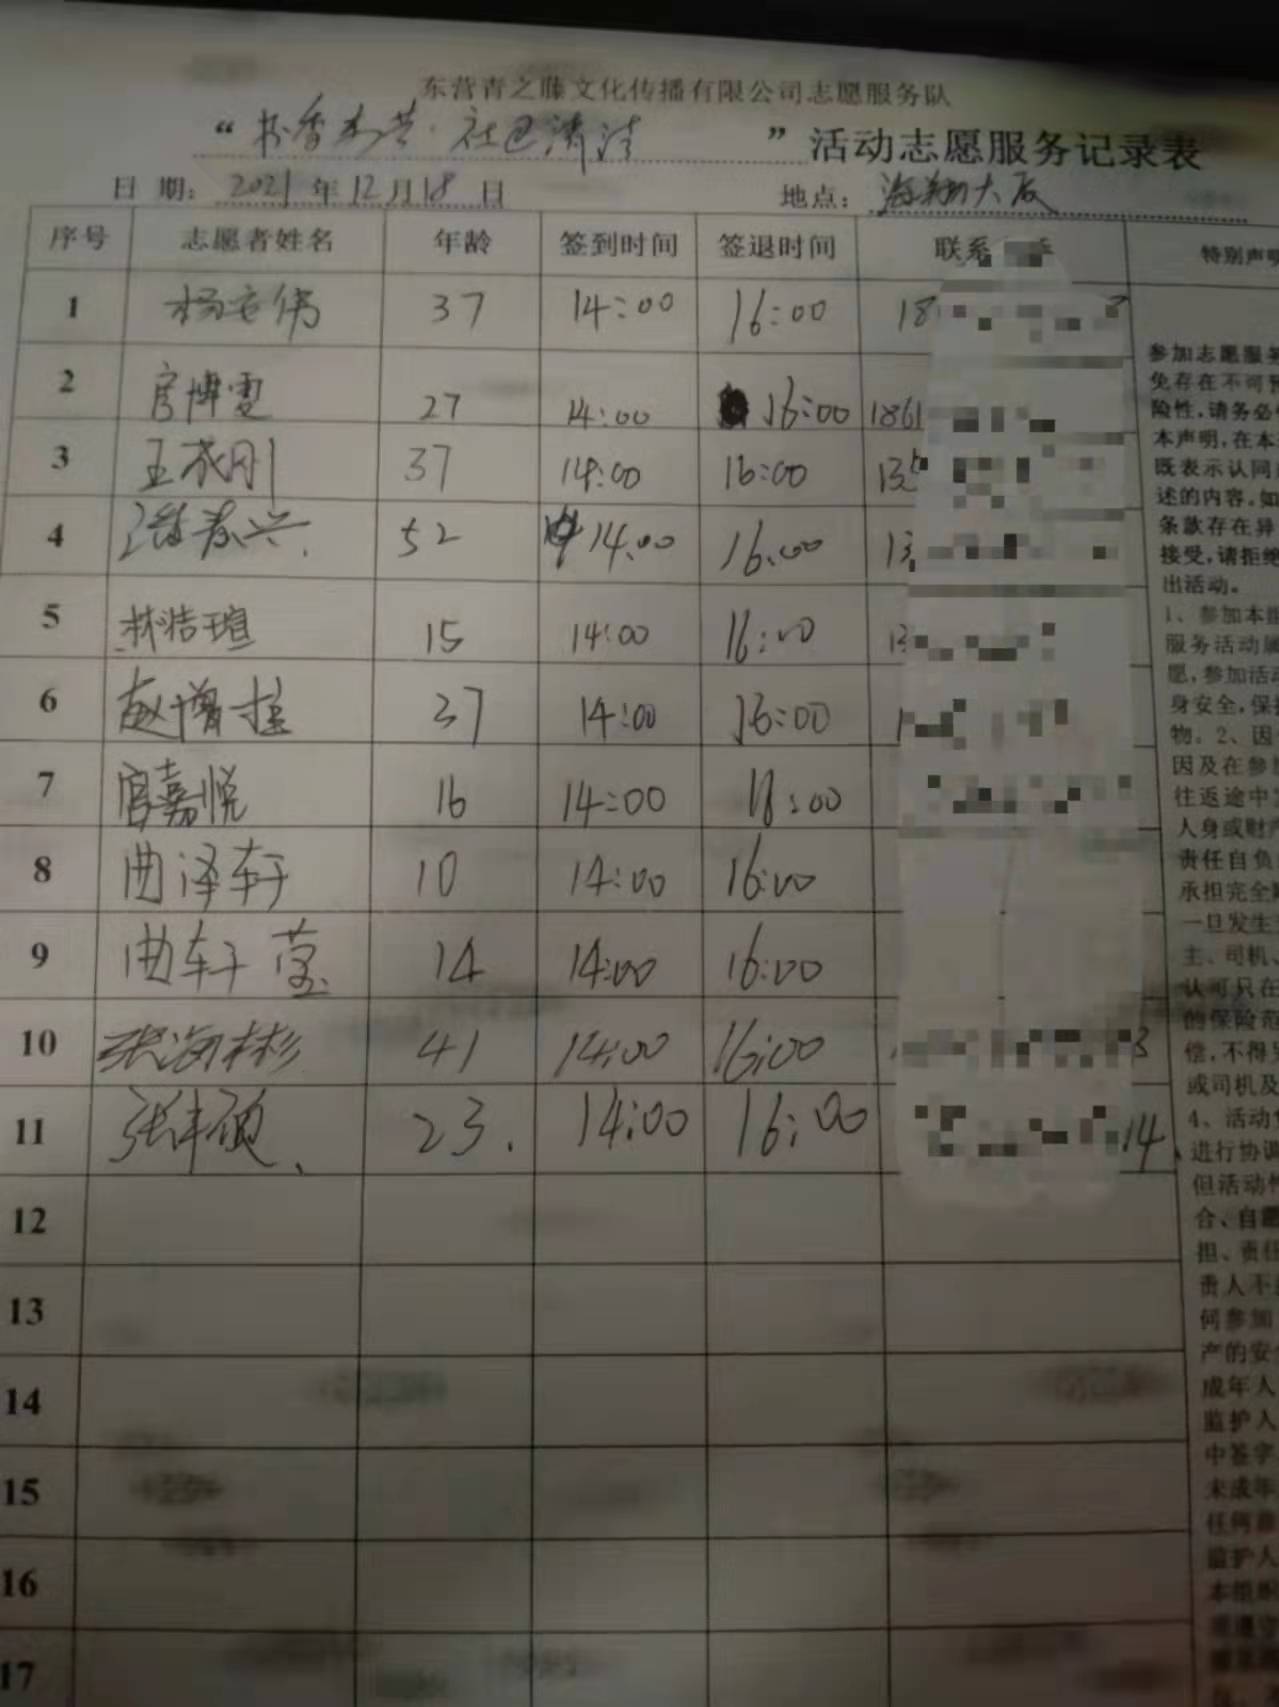 东营青之藤文化传播有限公司志愿服务队
“书香东营·社区清洁”活动志愿服务记录表
日 期: 2021 年 12 月 18 日 地点: 海翔大厦
序号 志愿者姓名 年龄 签到时间 签退时间 联系 特别声明
1 杨安伟 37 14:00 16:00 18
2 官博雯 27 14:00 16:00 1861
3 王成刚 37 14:00 16:00 135
4 52 14:00 16:00 13
5 林浩瑄 15 14:00 16:00 13
6 赵增 37 14:00 16:00 1
7 官嘉悦 16 14:00 18:00
8 曲泽轩 10 14:00 16:00
9 曲轩莹 14 14:00 16:00
10 张海彬 41 14:00 16:00 3
11 23. 14:00 16:00 14
12
13
14
15
16
17
参加志愿服务
免存在不可预
险性,请务必
本声明,在本
既表示认同
述的内容,如
条款存在异
接受,请拒绝
出活动。
1、参加本
服务活动属
愿,参加活动
身安全,保
物。2、因
因及在参
往返途中
人身或财产
责任自负
承担完全
一旦发生
主、司机、
认可只在
的保险范
偿,不得
或司机及
4、活动
进行协调
但活动
合、自愿
担、责任
责人不
何参加
产的安全
成年人
监护人
中签字
未成年
任何
监护人
本组织